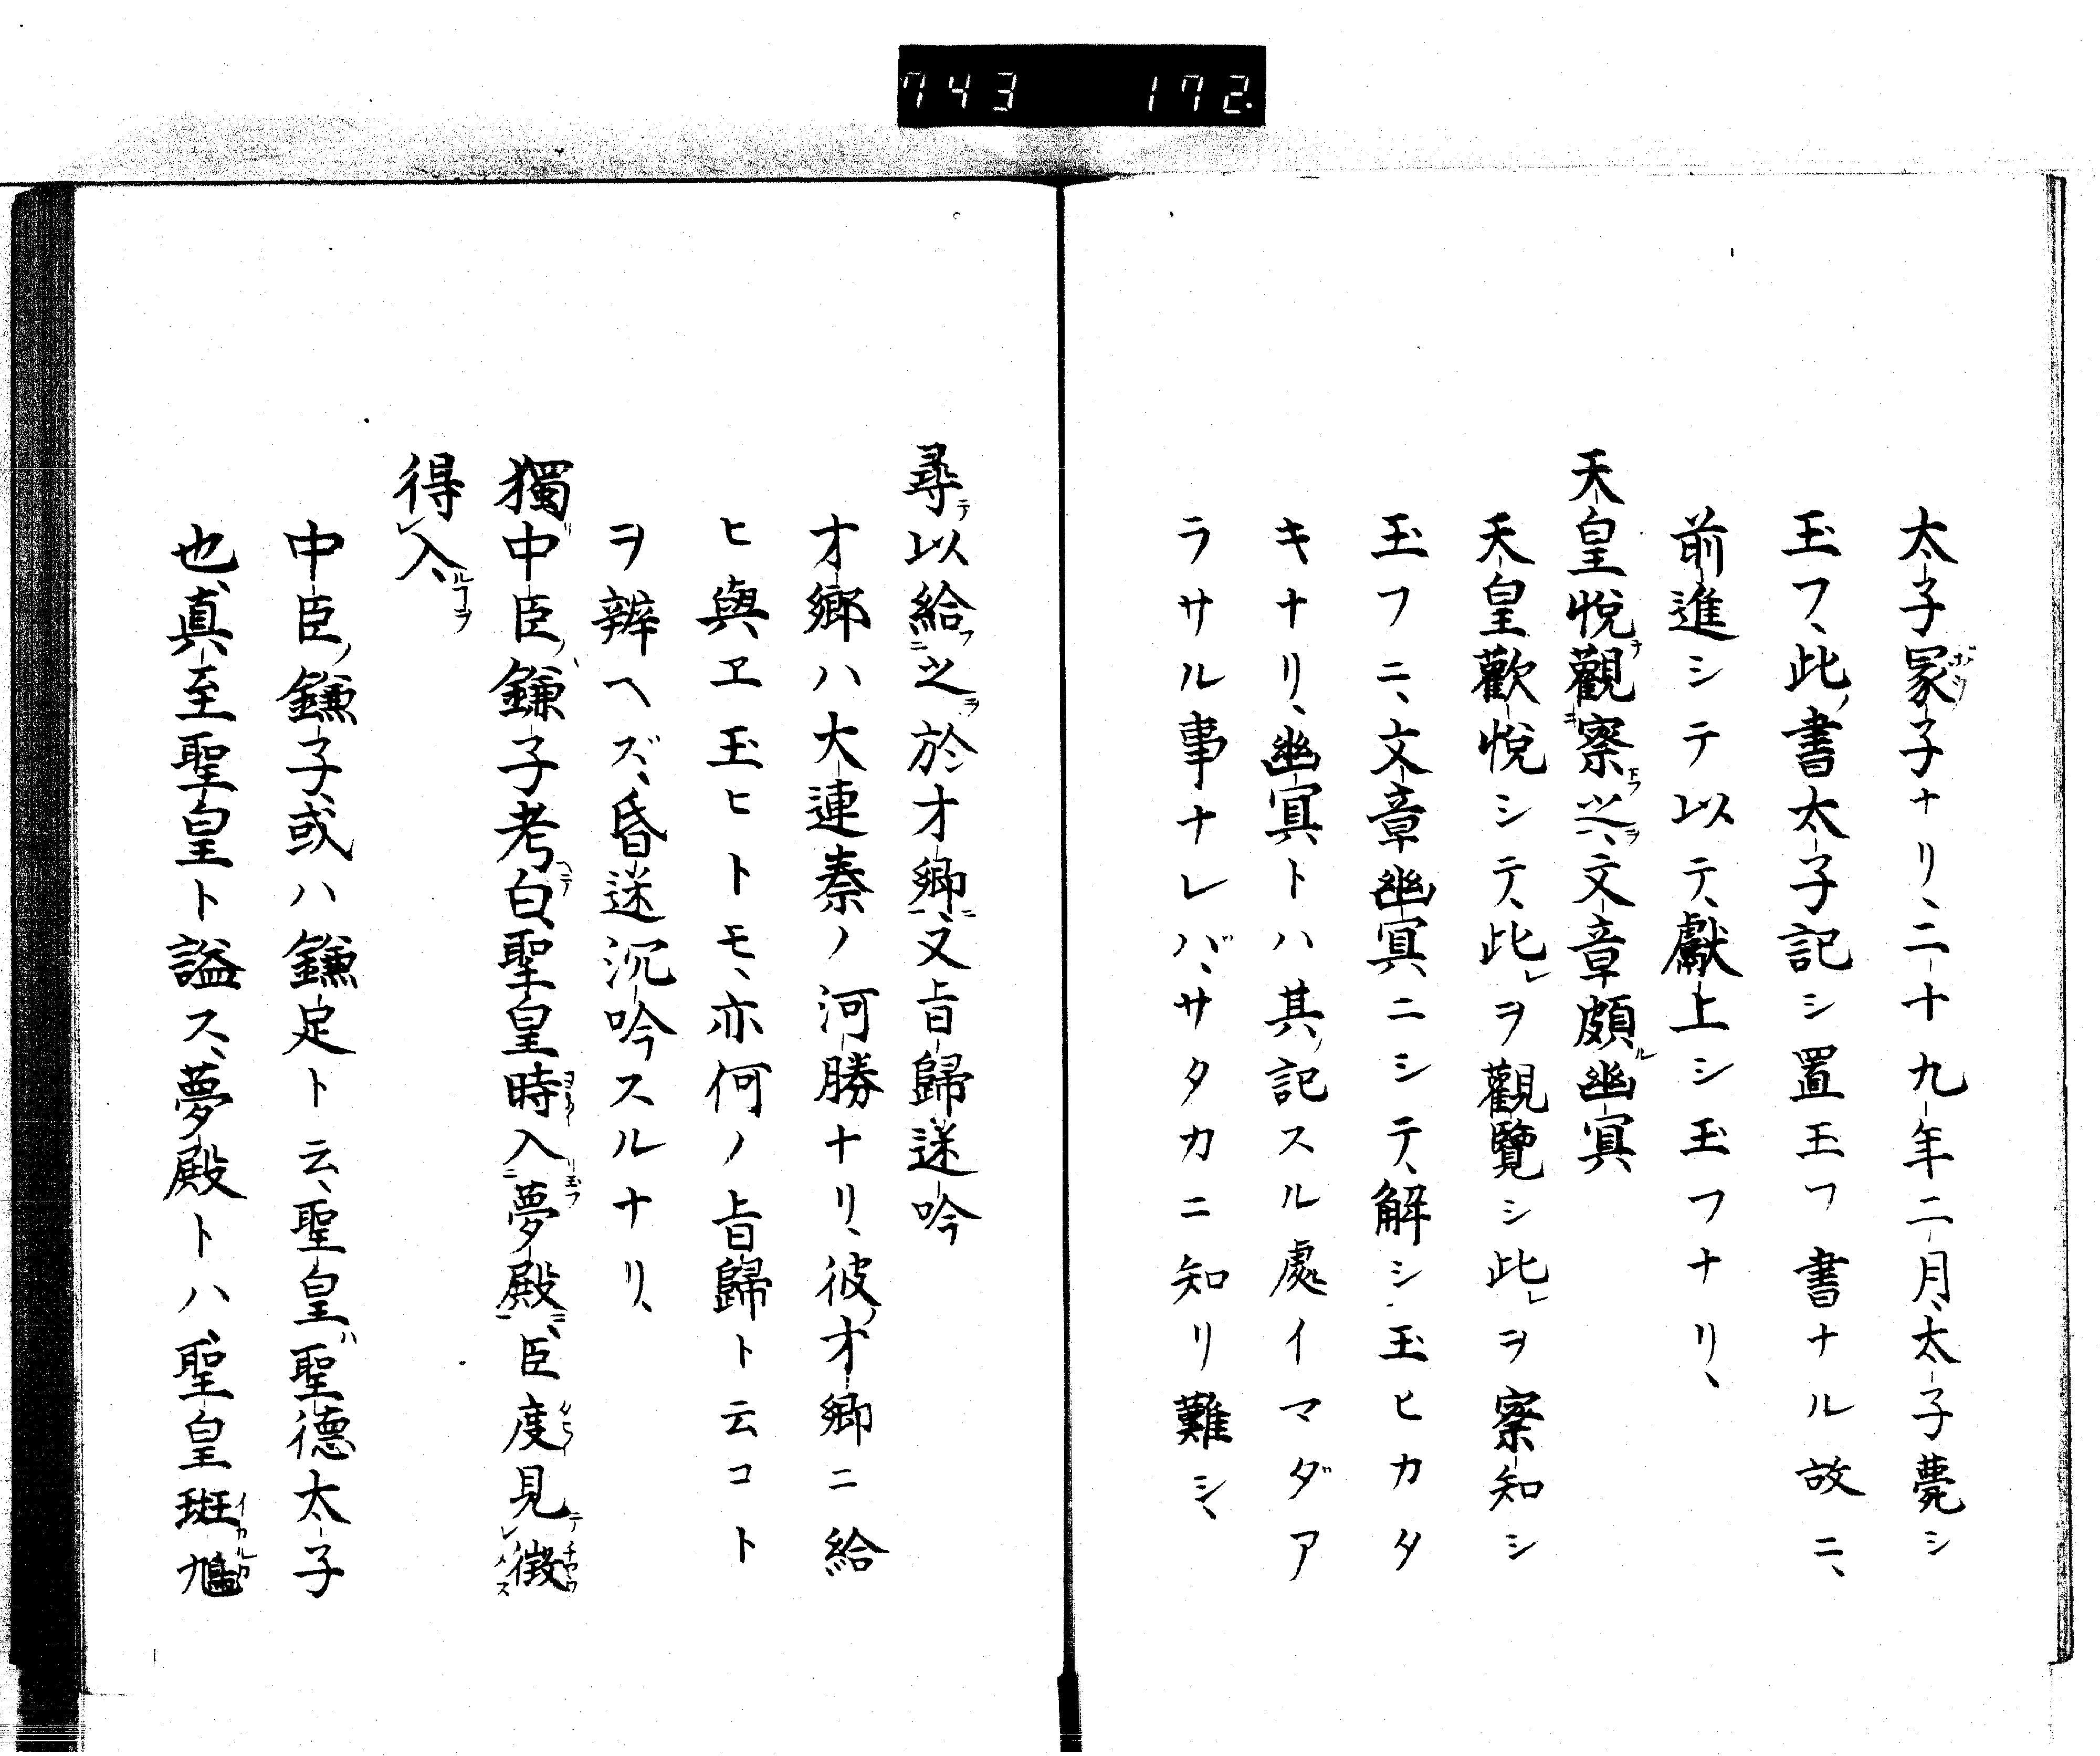 743 172
太子冢子ナリ、二十九年二月、太子薨シ
玉フ、此ノ書太子記シ置玉フ書ナル故ニ、
前進シテ以テ、獻上シ玉フナリ、
天皇悅觀察之、文章頗幽冥
天皇歡悅シテ、此レヲ觀覽シ此レヲ察知シ
玉フニ、文章幽冥ニシテ、解シ玉ヒカタ
キナリ、幽冥トハ其ノ記スル處イマダア
ラサル事ナレバ、サタカニ知リ難シ、
尋以給之於才卿、又旨歸迷吟
才鄉ハ大連秦ノ河勝ナリ、彼ノ才卿ニ給
ヒ與ヱ玉ヒトモ、亦何ノ旨歸ト云コト
ヲ辨ヘズ、昏迷沉吟スルナリ、
獨中臣鎌子考白、聖皇時入夢殿、臣度見徵
得入、
中臣ノ鎌子、或ハ鎌足ト云、聖皇ハ聖德太子
也、真至聖皇ト謚ス、夢殿トハ、聖皇斑鳩